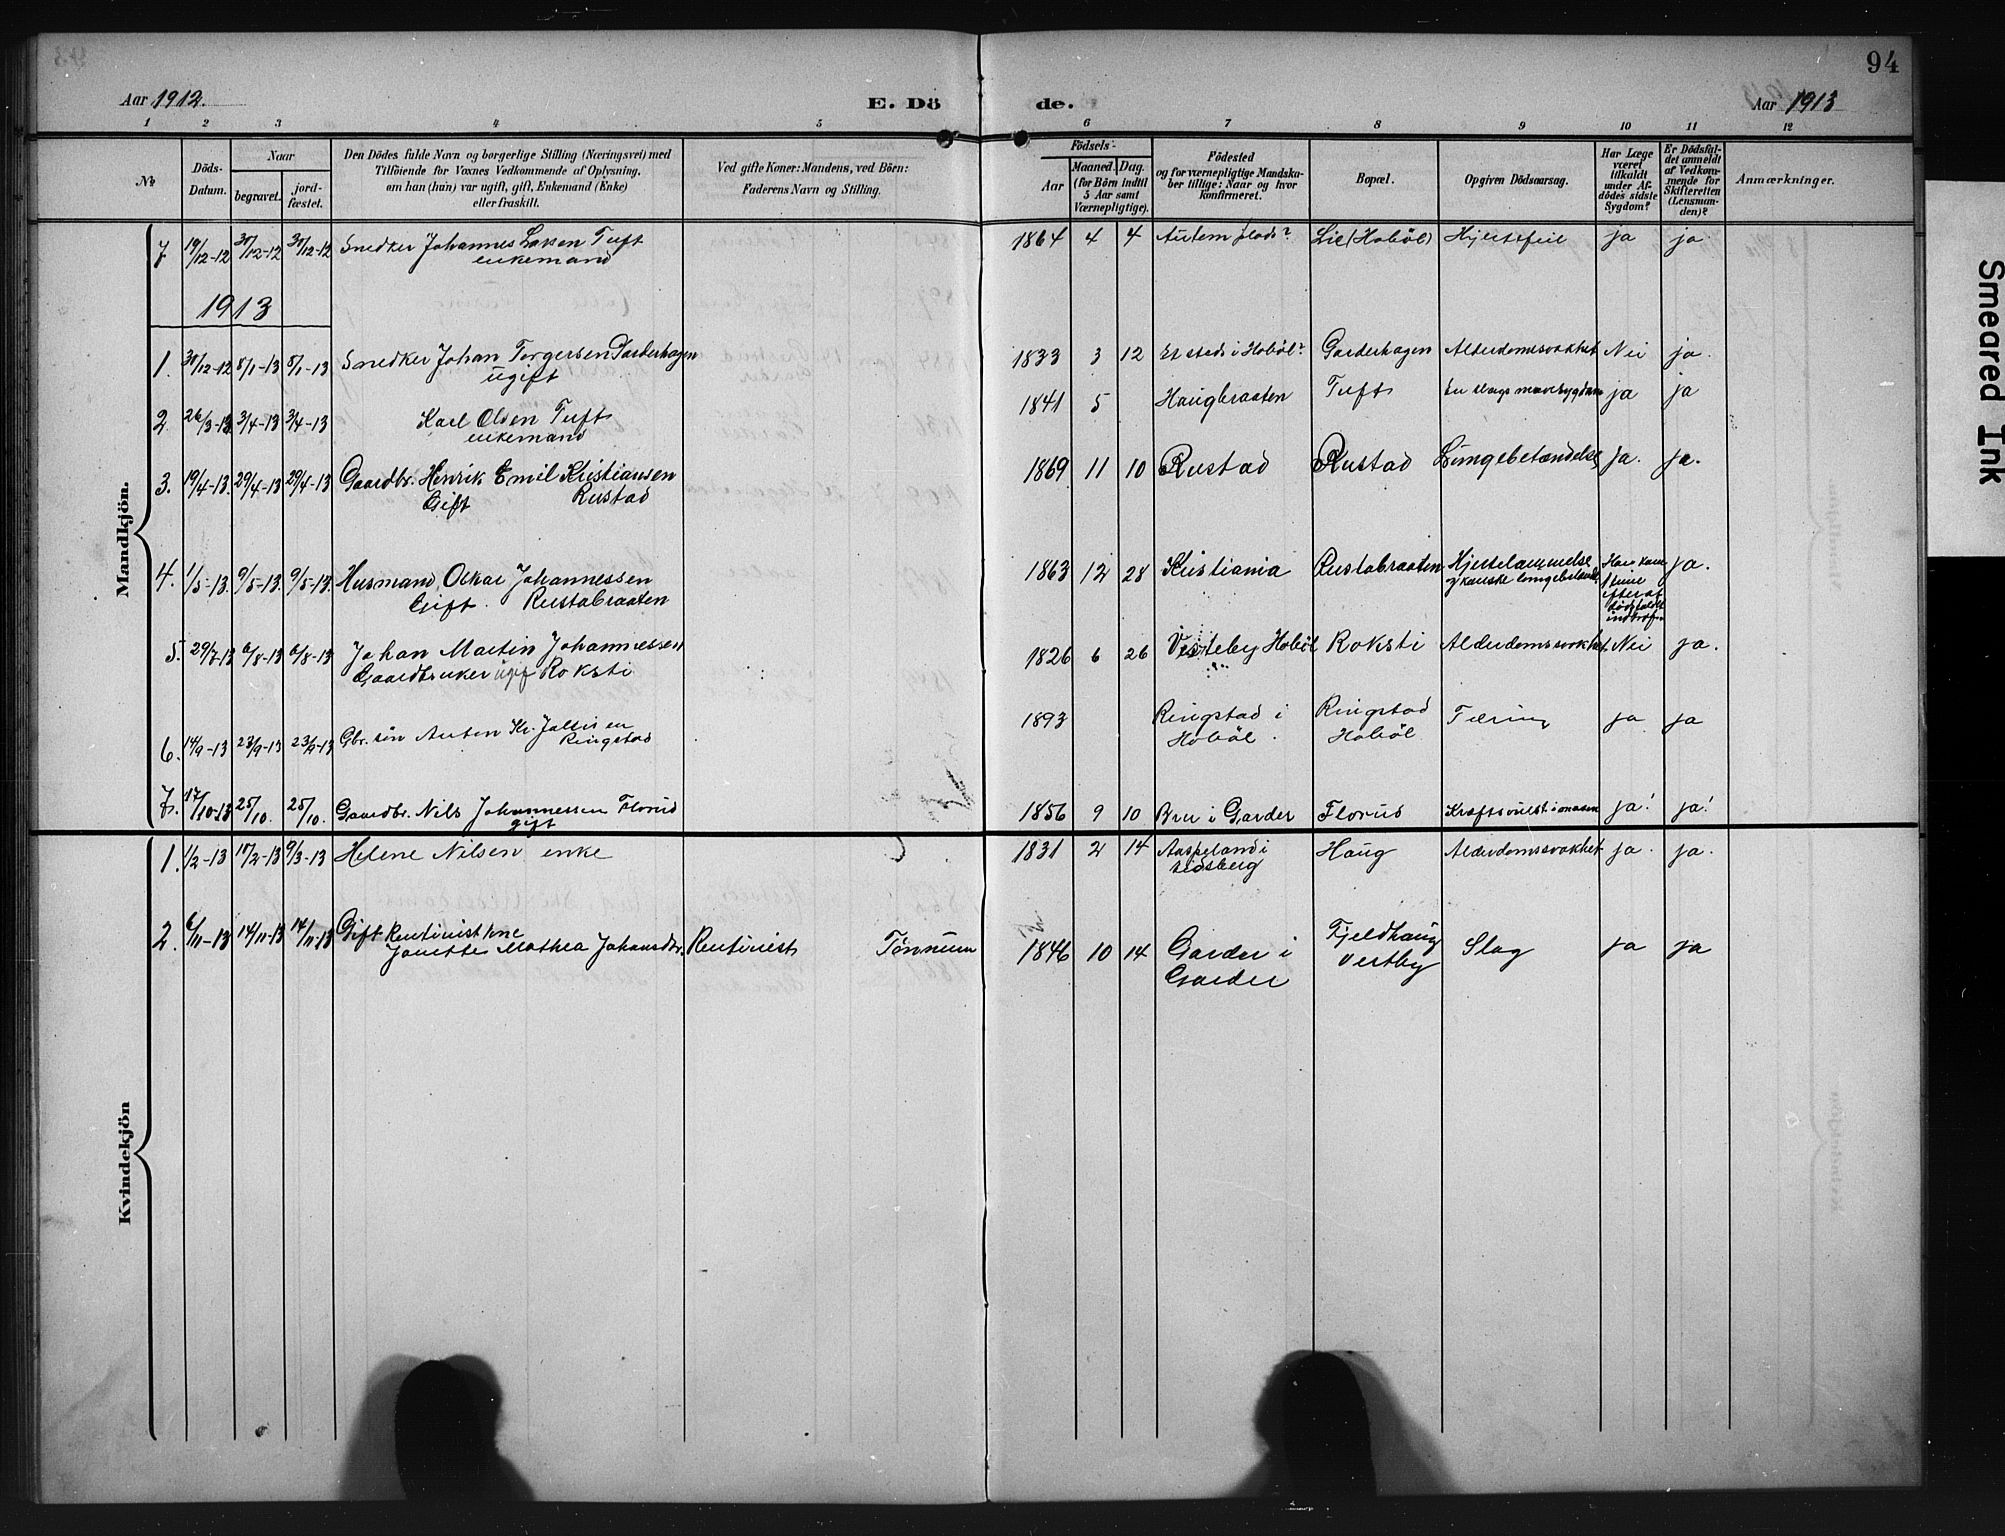 94
Aar 1912.
E. Dö
de.
Aar 1913
1 2 3 4 5 6 7 8 9 10 11 12
№
Döds-
Datum.
Naar
begravet.
jord-
fæstet.
Den Dödes fulde Navn og borgerlige Stilling (Næringsvei) med
Tilföiende for Voxnes Vedkommende af Oplysning,
om han (hun) var ugift, gift, Enkemand (Enke)
eller fraskilt.
Ved gifte Koner: Mandens, ved Börn:
Faderens Navn og Stilling.
Födsels-
Aar
Maaned. Dag.
(for Börn indtil
5 Aar samt
Værnepligtige).
Födested
og for værnepligtige Mandska-
ber tillige: Naar og hvor
Konfirmeret.
Bopæl.
Opgiven Dödsaarsag.
Har Læge
været
tilkaldt
under Af-
dödes sidste
Sygdom?
Er Dödsfal-
det anmeldt
af Vedkom-
mende for
Skifteretten
(Lensman-
den)?
Anmærkninger.
Mandkjön.
7 19/12-12 30/12-12 30/12-12 Snedker Johannes Larsen Tuft 1864 4 4 Lie (Hoböl) Hjertefeil ja ja
enkemand
1913
1. 30/12-12 8/1-13 8/1-13 Snedker Johan Torgersen Garderhagen 1833 3 12 Et sted i Hoböl? Garderhagen Alderdomssvakhet Nei ja.
ugift
2 26/3-13 3/4-13 3/4-13 Karl Olsen Tuft 1841 5 Haugbraaten Tuft En slags mavesygdom ja ja
enkemand
3. 19/4-13. 29/4-13 29/4-13 Gaardbr. Henrik Emil Kristiansen 1869 11 10 Rustad Rustad Lungebetændelse ja. ja.
Gift Rustad
4. 1/5-13. 9/5-13. 9/5-13. Husmand Oskar Johannessen 1863 12 28 Kristiania Rustabraaten Hjertelammelse ja.
Gift. Rustabraaten og kanske lungebetænd.
Han kom
1 time
efter at
dödsfaldet
indtraf
5. 29/7-13 6/8-13 6/8-13 Johan Martin Johannessen 1826 6 26 Vesteby Hoböl Roksti Alderdomssvakhet. Nei ja.
Gaardbruker ugif Roksti
6. 14/9-13 23/9-13 23/9-13 Gbr. sön Anton Kr. 1893 Ringstad i Ringstad Tæring ja ja
Ringstad Hoböl. Hoböl
7. 17/10-13 25/10. 25/10. Gaardbr. Nils Johannessen Florud 1856 9 10 Bru i Garder Florud Kræftsvulst i maven ja! ja!
gift
Kvindekjön
1. 1/2-13 17/2-13 9/3-13 Helene Nilsen enke 1831 2 14 Aaspeland i Haug Alderdomssvakhet ja. ja.
Eidsberg
2. 6/11-13 14/11-13 14/11-13 Gift Rentinist kone
Janette Mathea Johansdtr. Rentinist Tönnum 1846 10 14 Garder i Fjeldhaug Slag ja ja
Garder Vestby
Smeared Ink